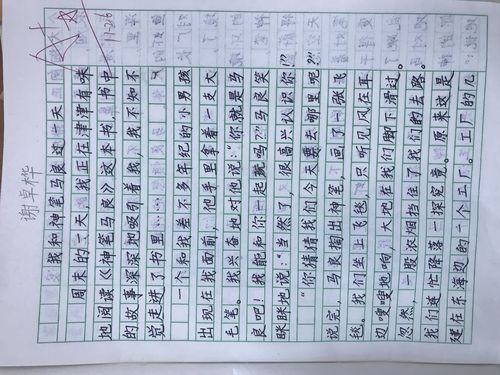 谢卓桦
11.26
我和神笔马良过一天
周末的一天，我正在津津有味
地阅读《神笔马良》这本书，书中
的故事深深地吸引着我，我不知不
觉走进了书里……
一个和我差不多年纪的小男孩
出现在我面前，他手里拿着一支大
毛笔。我兴奋地对他说：“你就是马
良吧！我能和你一起玩吗？”马良笑
眯眯地说：“当然了，很高兴认识你！”
“你猜猜我们今天要去哪里呢？”
说完，马良掏出神笔，画了一张飞
毯。我们坐上飞毯，只听见风在耳
边嗖嗖地响，大地在我们脚下滑过。
忽然，一股浓烟挡住了我们的去路。
我们连忙降落一探究竟。原来这是
建在东海边的一个工厂。工厂的几